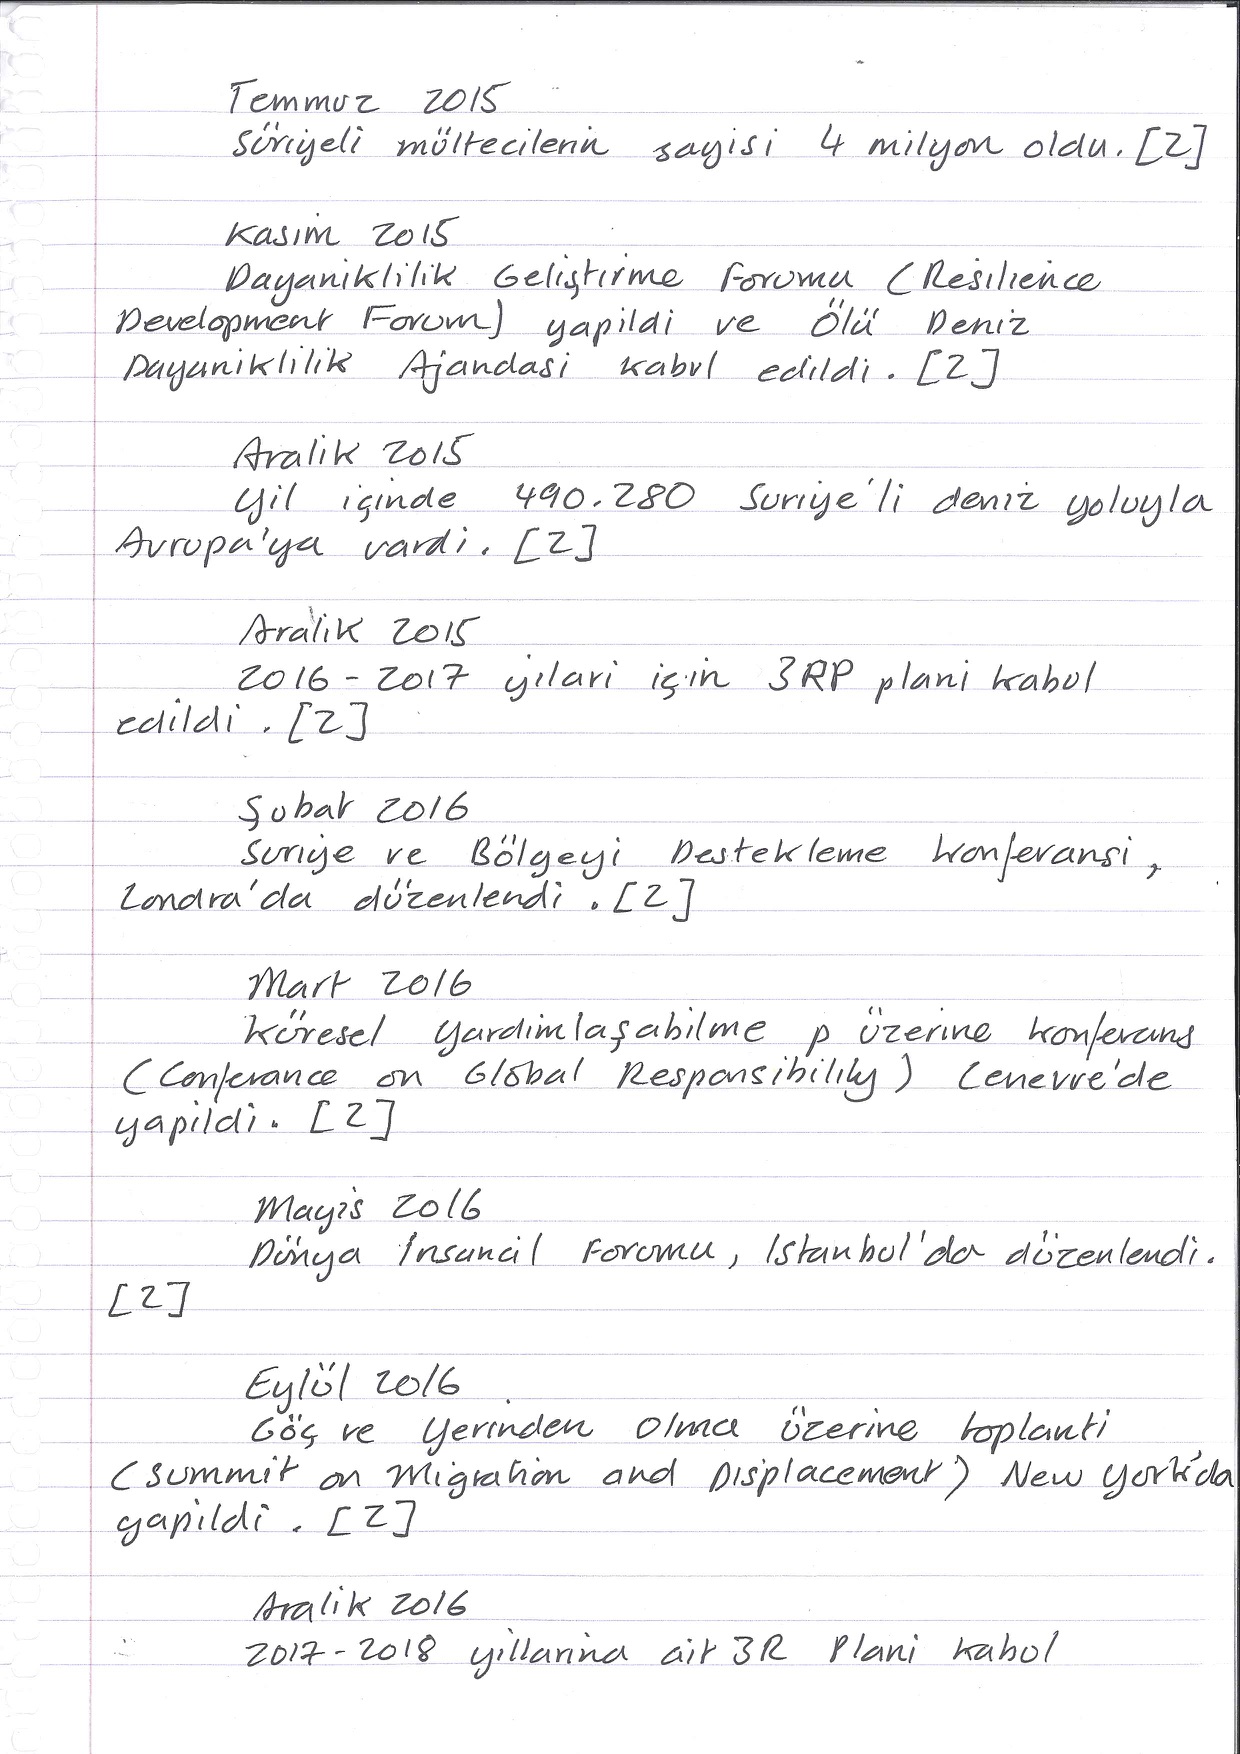 Temmuz 2015
Süriyeli mültecilerin sayisi 4 milyon oldu. [2]
Kasim 2015
Dayaniklilik Geliştirme Forumu (Resilience
Development Forum) yapildi ve Ölü Deniz
Dayaniklilik Ajandasi kabul edildi. [2]
Aralik 2015
Yil içinde 490.280 Suriye'li deniz yoluyla
Avrupa'ya vardi. [2]
Aralik 2015
2016-2017 yilari için 3RP plani kabul
edildi. [2]
Şubat 2016
Suriye ve Bölgeyi Destekleme konferansi,
Londra'da düzenlendi. [2]
Mart 2016
Küresel Yardimlaşabilme p üzerine konferans
(Conferance on Global Responsibility) Cenevre'de
yapildi. [2]
Mayis 2016
Dünya İnsancil Forumu, Istanbul'da düzenlendi.
[2]
Eylül 2016
Göç ve Yerinden Olma üzerine toplanti
(Summit on Migration and Displacement) New York'da
yapildi. [2]
Aralik 2016
2017-2018 yillarina ait 3R Plani kabul